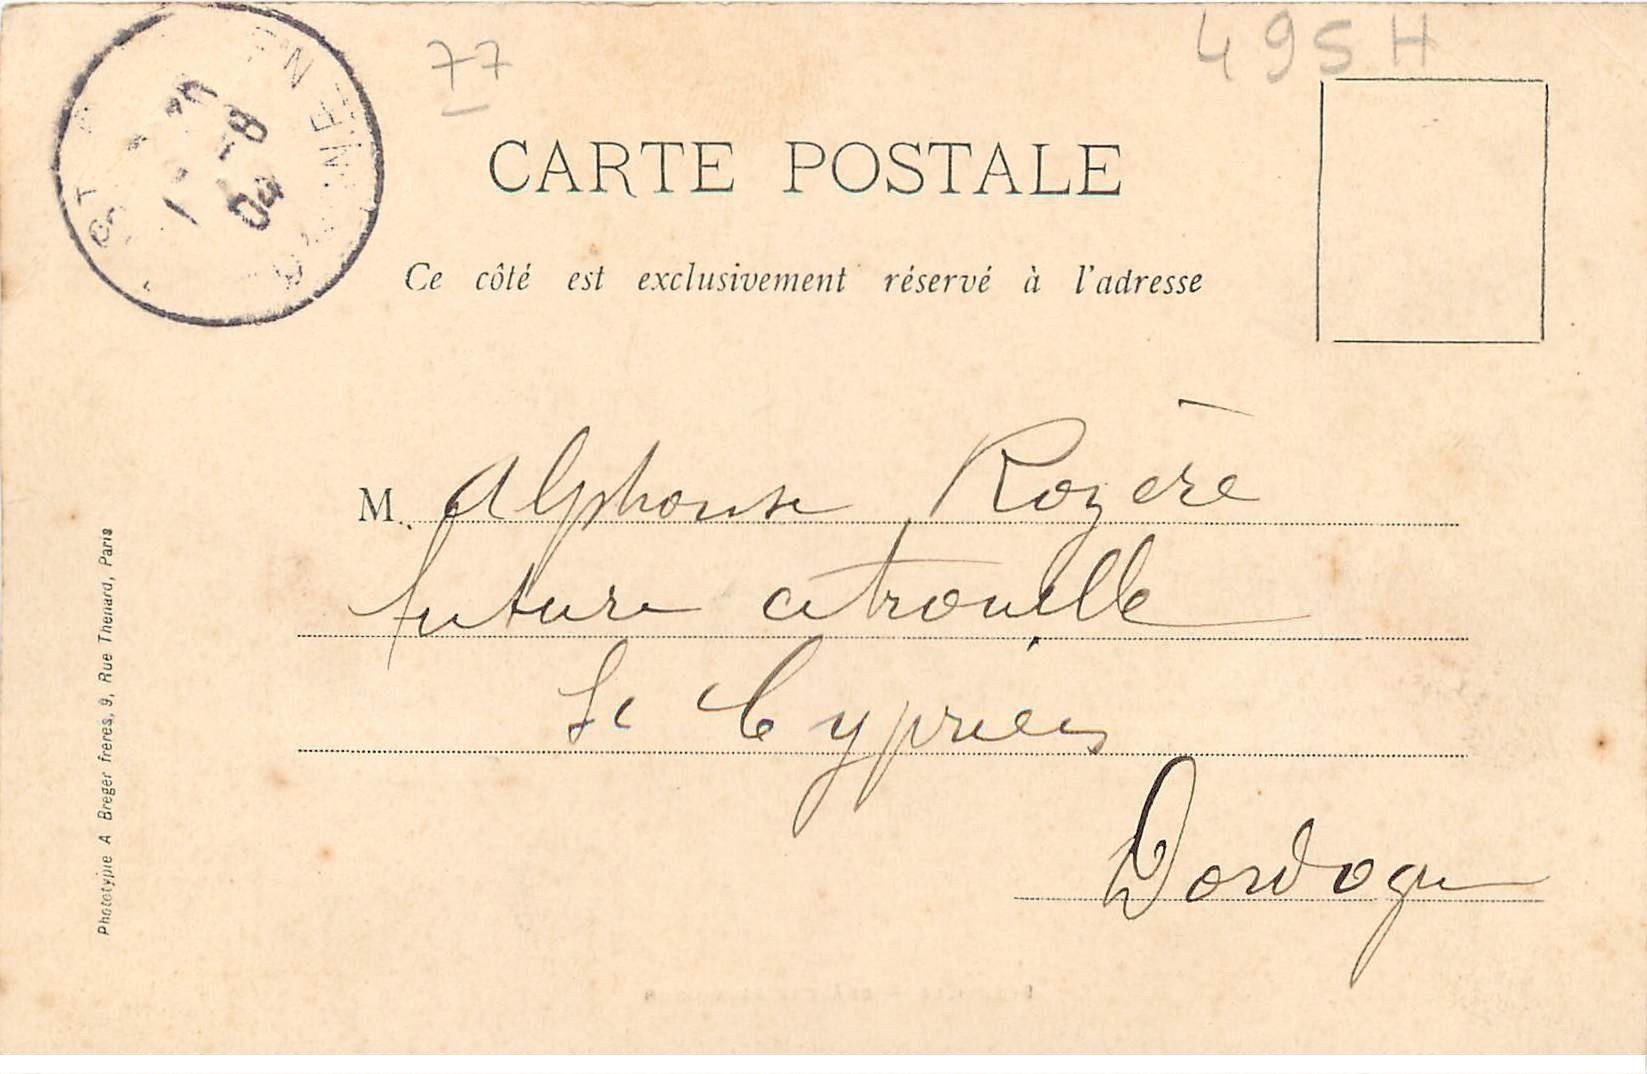 77
495H
CARTE POSTALE
Ce côté est exclusivement réservé à l'adresse
M. Alphonse Rozère
future citrouille
St Cyprien
Dordogne
Phototypie A Breger frères, 9, Rue Thenard, Paris